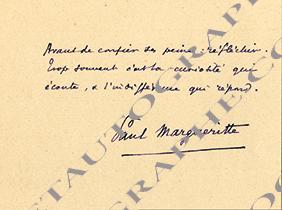 Avant de confier ses peines, réfléchir.
Trop souvent c'est la curiosité qui
écoute, & l'indifférence qui répond.
Paul Margueritte